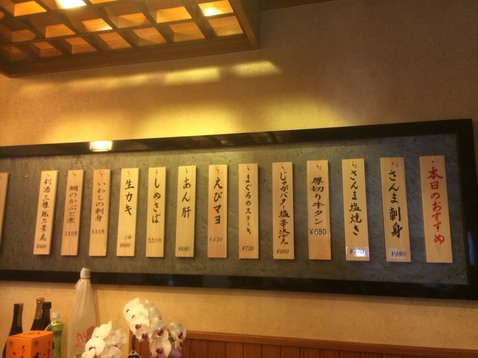 本日のおすすめ
さんま刺身
¥480
さんま塩焼き
厚切り牛タン
¥680
じゃがバター塩辛添え
¥480
まぐろのステーキ
¥730
えびマヨ
¥530
あん肝
¥680
しめさば
生カキ
いわしの刺身
鯛のかぶと煮
利酒三種